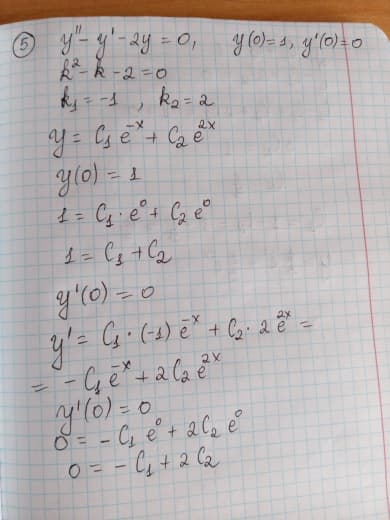 ⑤ y'' - y' - 2y = 0, y(0) = 1, y'(0) = 0
k² - k - 2 = 0
k₁ = -1 , k₂ = 2
y = C₁ e⁻ˣ + C₂ e²ˣ
y(0) = 1
1 = C₁ · e⁰ + C₂ e⁰
1 = C₁ + C₂
y'(0) = 0
y' = C₁ · (-1) e⁻ˣ + C₂ · 2 e²ˣ =
= - C₁ e⁻ˣ + 2 C₂ e²ˣ
y'(0) = 0
0 = - C₁ e⁰ + 2 C₂ e⁰
0 = - C₁ + 2 C₂